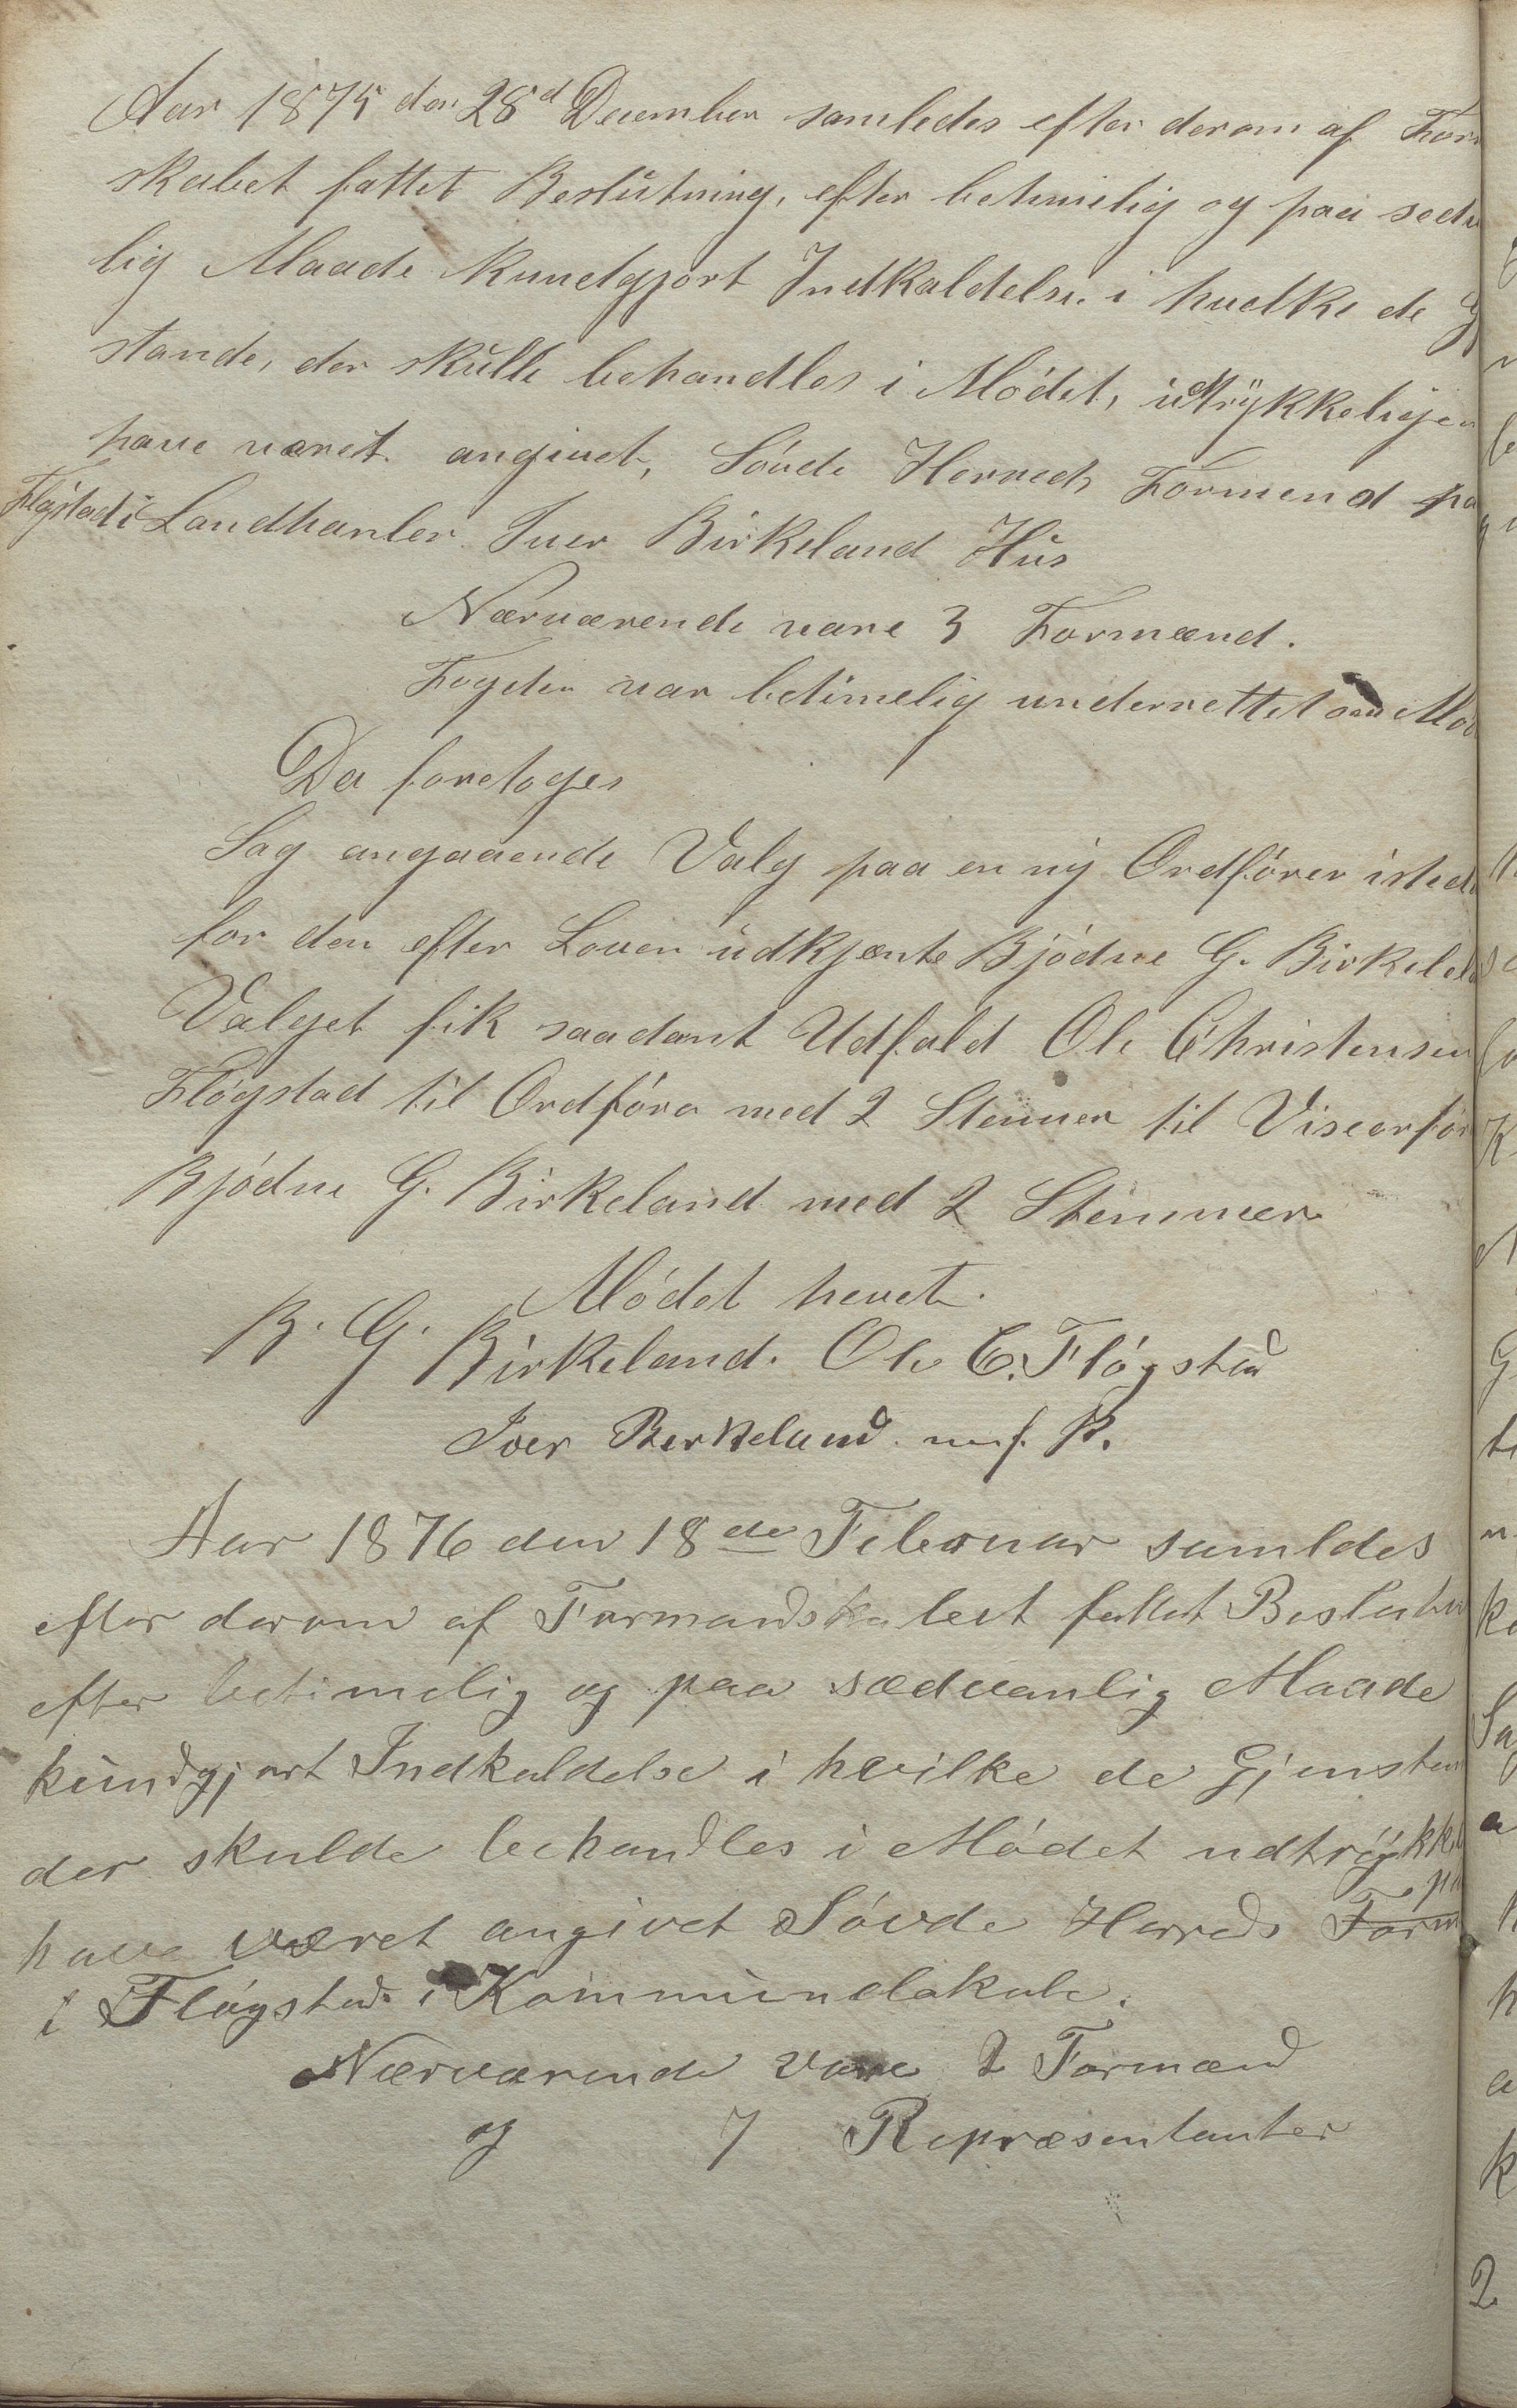 Aar 1875 den 28d December samledes efter derom af For
skabet fattet Beslutning, efter betimelig og paa sedv
lig Maade Kundgjort Indkaldelse i hvilke de Gj
stande, der skulle behandles i Mödet, udtrykkeligen
have været angivet, Søvde Herreds Formend pa
Fløgstad i Landhanler Iver Birkeland Hus
Nærværende vare 3 Formænd.
Fogden var betimelig underrettet om Mød
Da foretoges
Sag angaaende Valg paa en ny Ordfórer isted
for den efter Loven udkjente Bjódne G. Birkeland
Valget fik saadant Udfald Ole Christensen
Flógstad til Ordfóra med 2 Stemmer til Viseorfór
Bjódne G. Birkeland med 2 Stemmer
Módet hevet.
B. G. Birkeland. Ole C. Flógstad
Iver Berkeland m. f. P.
Aar 1876 den 18de Februar samldes
efter derom af Formandskabet fattet Beslutn
efter betimelig og paa sædvanlig Maade
kundgjort Indkaldelse i hvilke de Gjensten
der skulde behandles i Mødet udtrøykkel
have været angivet Søvde Herreds Form pa
i Fløgstad i Kommunelokale.
Nærværende vare 2 Formænd
og 7 Repræsentanter